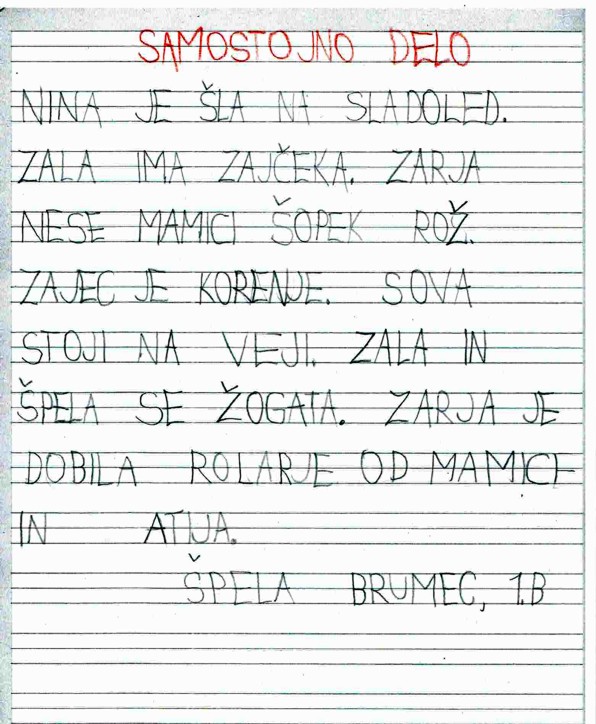 SAMOSTOJNO DELO
NINA JE ŠLA NA SLADOLED.
ZALA IMA ZAJČEKA. ZARJA
NESE MAMICI ŠOPEK ROŽ.
ZAJEC JE KORENJE. SOVA
STOJI NA VEJI. ZALA IN
ŠPELA SE ŽOGATA. ZARJA JE
DOBILA ROLARJE OD MAMICE
IN ATIJA.
ŠPELA BRUMEC, 1.B